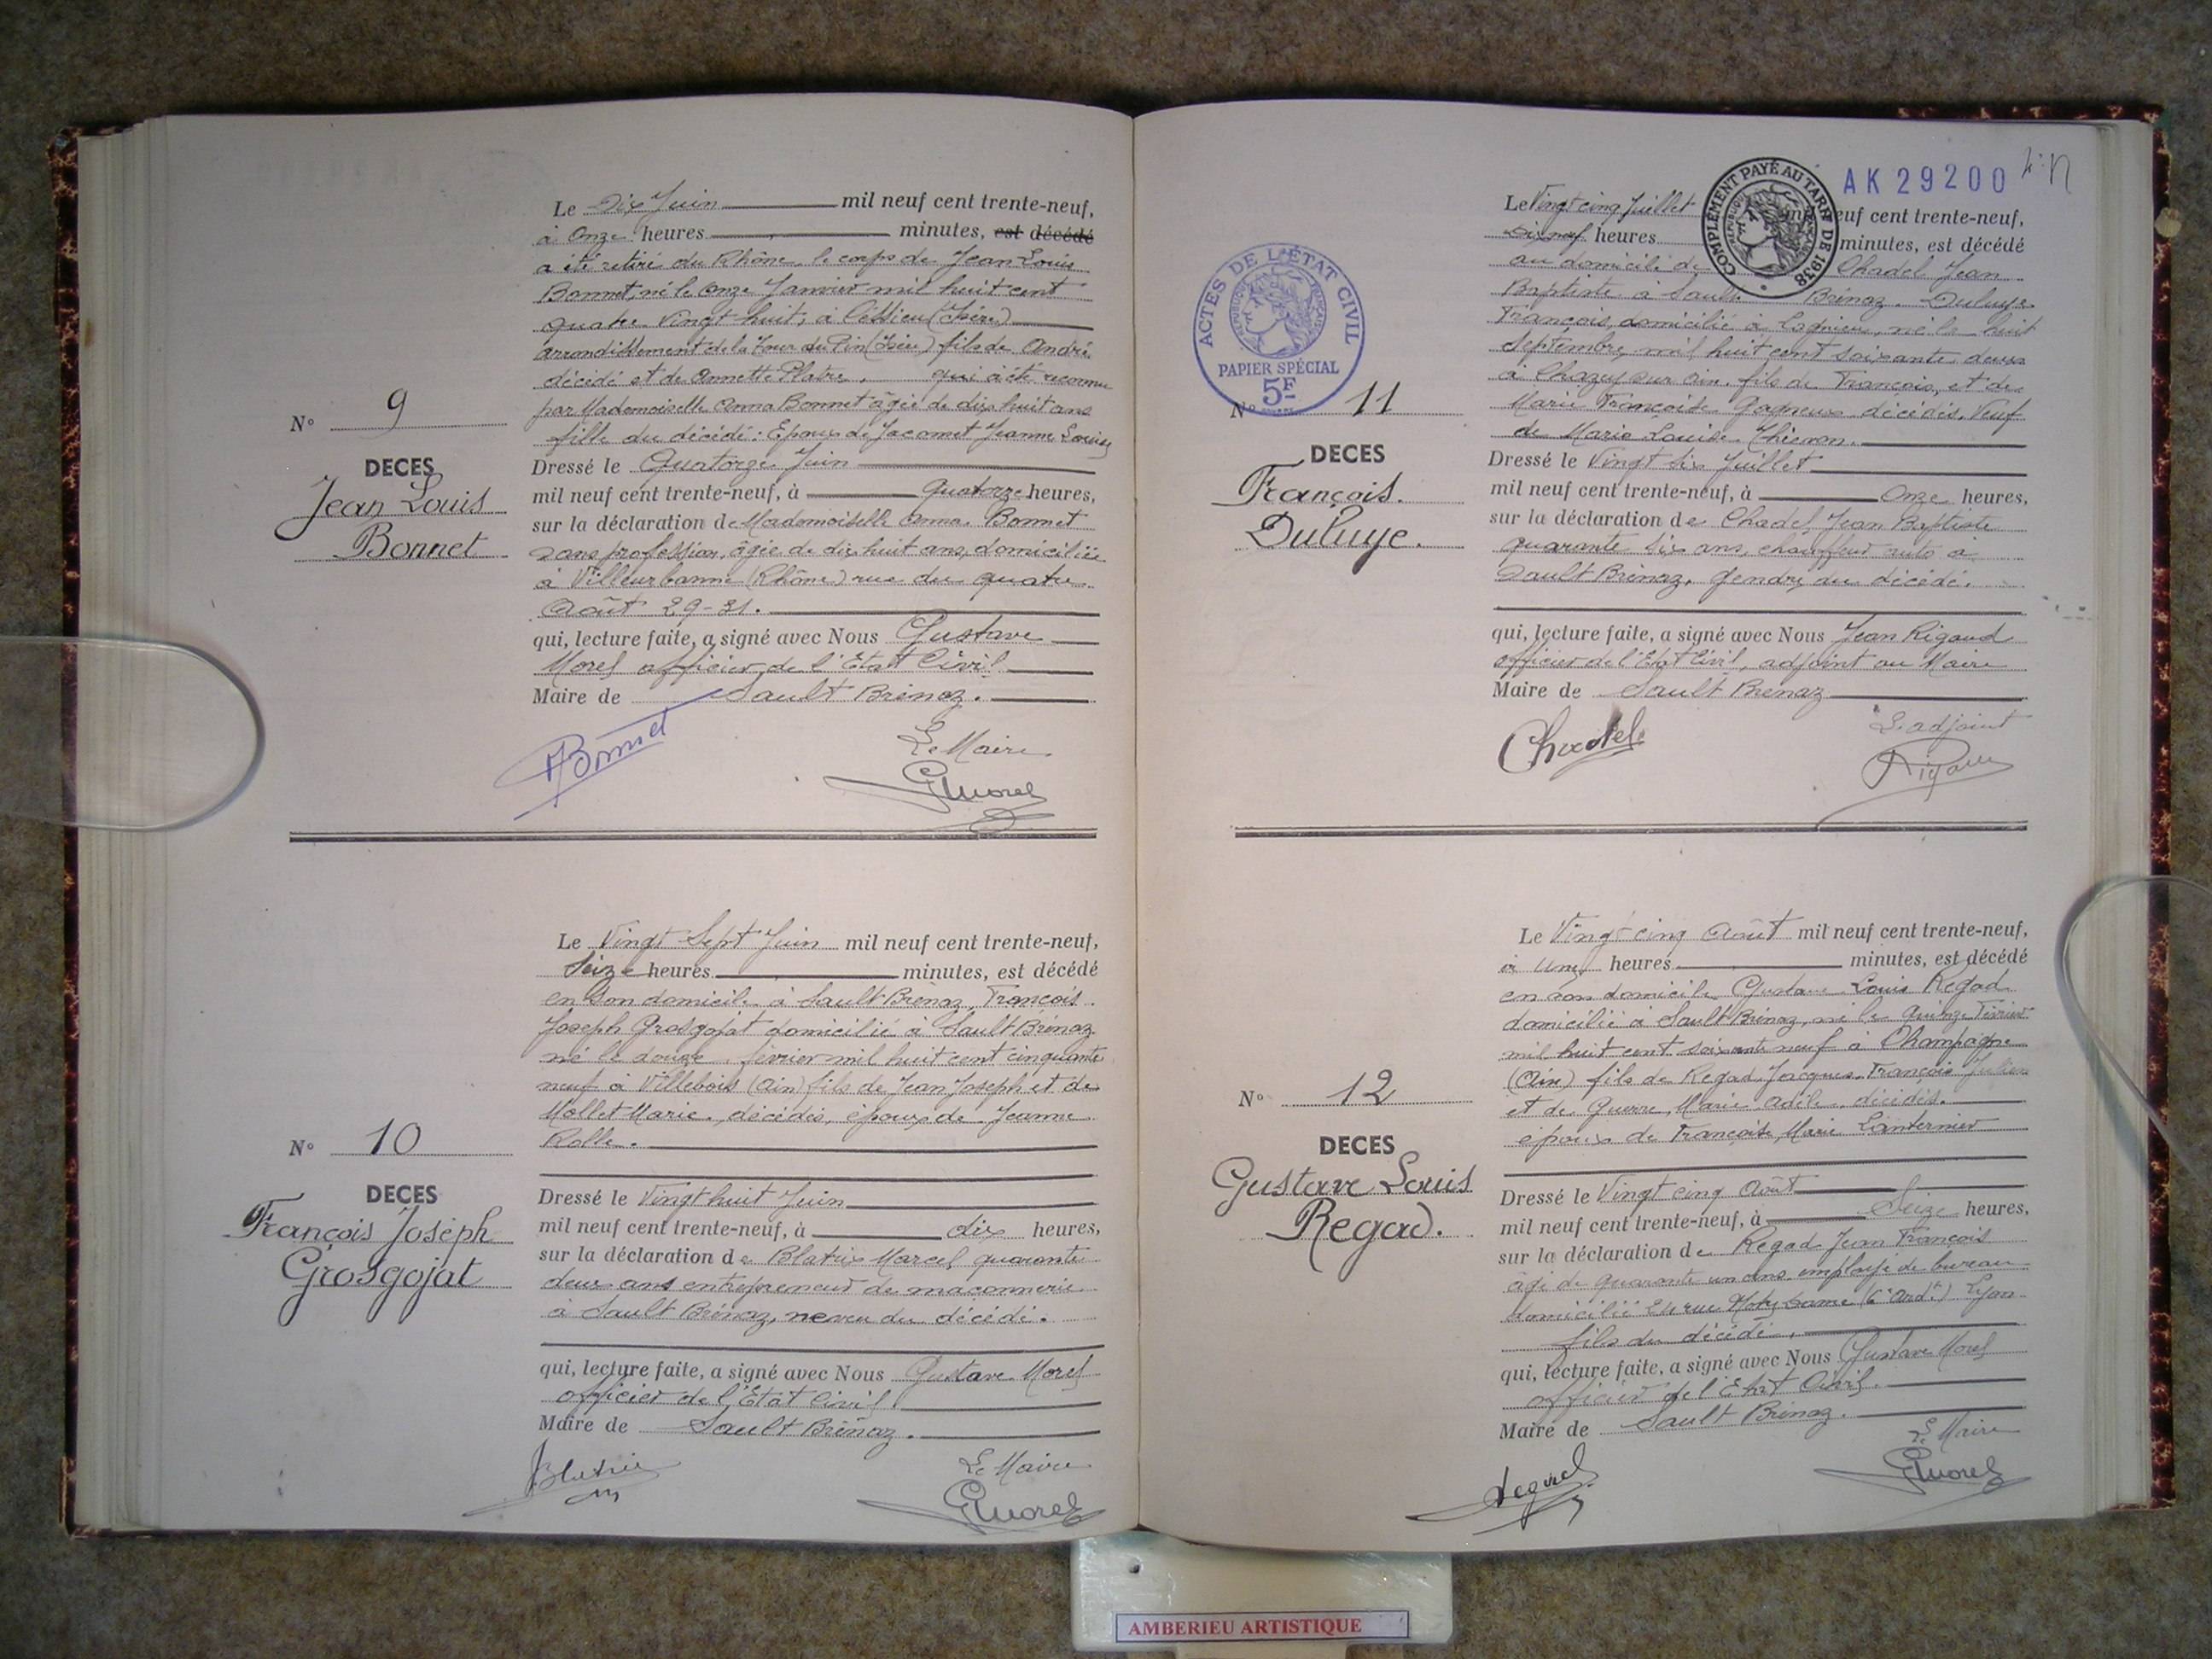 Le Dix Juin mil neuf cent trente-neuf,
à Onze heures minutes, est décédé
a été retiré du Rhône, le corps de Jean Louis
Bonnet, né le onze Janvier mil huit cent
quatre vingt huit, à (Isère)
arrondissement de la Tour du Pin (Isère) fils de André
décédé et de Annette Platre, qui a été reconnu
par Mademoiselle Anna Bonnet âgée de dix huit ans
fille du décédé : Epoux de Jacomet Jeanne Louise
N° 9
DECES
Jean Louis
Bonnet
Dressé le Quatorze Juin
mil neuf cent trente-neuf, à Quatorze heures,
sur la déclaration de Mademoiselle Anna Bonnet
sans profession, âgée de dix huit ans, domiciliée
à Villeurbanne (Rhône) rue du quatre
Août 29-31.
qui, lecture faite, a signé avec Nous Gustave
Morel officier de l'Etat Civil
Maire de Sault Brénaz.
ABonnet
Le Maire
GMorel
Le Vingt Sept Juin mil neuf cent trente-neuf,
Seize heures minutes, est décédé
en son domicile à Sault Brénaz, François
Joseph Grosgojat domicilié à Sault Brénaz
né le douze février mil huit cent cinquante
neuf à Villebois (Ain) fils de Jean Joseph et de
Mollet Marie, décédés, époux de Jeanne
Rolle.
N° 10
DECES
François Joseph
Grosgojat
Dressé le Vingt huit Juin
mil neuf cent trente-neuf, à dix heures,
sur la déclaration de Blatrix Marcel quarante
deux ans entrepreneur de maçonnerie
à Sault Brénaz, neveu du décédé.
qui, lecture faite, a signé avec Nous Gustave Morel
officier de l'Etat Civil
Maire de Sault Brénaz.
Blatrix
Le Maire
GMorel
AK 29200
COMPLÉMENT PAYÉ AU TARIF DE 1938
RÉPUBLIQUE
ACTES DE L'ÉTAT CIVIL
RÉPUBLIQUE FRANÇAISE
PAPIER SPÉCIAL
5F
Le Vingt cinq Juillet neuf cent trente-neuf,
Dix neuf heures minutes, est décédé
au domicile de Chadel Jean
Baptiste à Sault Brénaz. Duluye
François, domicilié à Lagnieu, né le huit
Septembre mil huit cent soixante deux
à Chazey sur Ain, fils de François, et de
Marie Françoise Gagneux décédés, Veuf
de Marie Louise
N° 11
DECES
François
Duluye.
Dressé le Vingt six Juillet
mil neuf cent trente-neuf, à Onze heures,
sur la déclaration de Chadel Jean Baptiste
quarante six ans, chauffeur auto à
Sault Brénaz, gendre du décédé.
qui, lecture faite, a signé avec Nous Jean Rigaud
officier de l'Etat Civil, adjoint au Maire
Maire de Sault Brénaz
Chadel
L'adjoint
Rigaud
Le Vingt cinq Août mil neuf cent trente-neuf,
à une heures minutes, est décédé
en son domicile Gustave Louis Regad
domicilié à Sault Brénaz, né le Quinze Février
mil huit cent soixante neuf à Champagne
(Ain) fils de Regad Jacques François Julien
et de Guerre, Marie Adèle, décédés.
époux de Françoise Marie Lanternier
N° 12
DECES
Gustave Louis
Regad.
Dressé le Vingt cinq Août
mil neuf cent trente-neuf, à Seize heures,
sur la déclaration de Regad Jean François
âgé de quarante un ans employé de bureau
domicilié rue (6e Ardt) Lyon
fils du décédé,
qui, lecture faite, a signé avec Nous Gustave Morel
officier de l'Etat Civil.
Maire de Sault Brénaz.
Le Maire
GMorel
AMBERIEU ARTISTIQUE